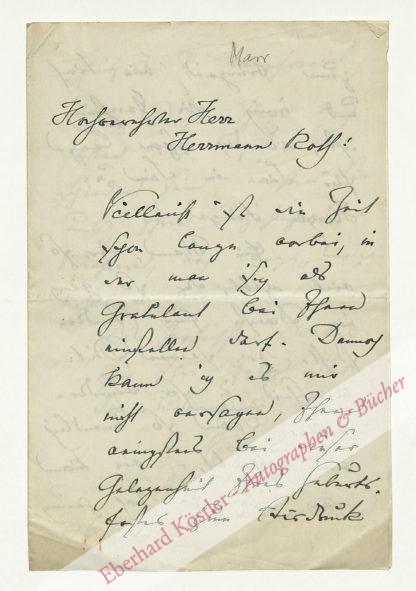 Marr
Hochverehrter Herr
Herrmann Roth!
Vielleicht ist die Zeit
schon lange vorbei, in
der man sich als
Gratulant bei Ihnen
einstellen darf. Dennoch
kann ich es mir
nicht versagen, Ihnen
wenigstens bei dieser
Gelegenheit Ihres Geburts-
festes den Ausdruck
Eberhard Köstler Autographen & Bücher